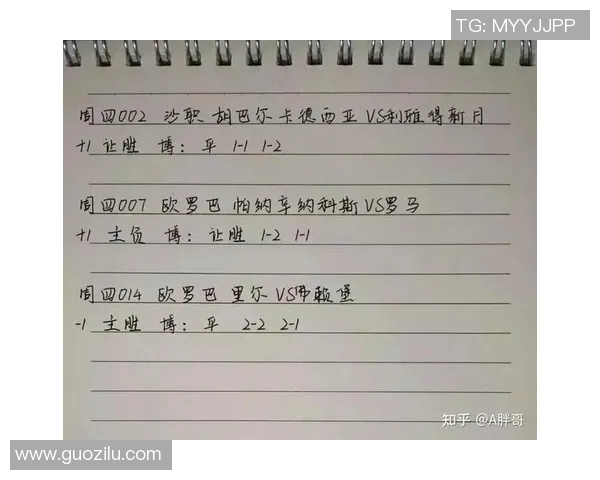 TG: MYYJJPP
周四002 沙职 胡巴尔卡德西亚VS利雅得新月
+1 让胜 博: 平 1-1 1-2
周四007 欧罗巴 帕纳辛纳科斯VS罗马
+1 主负 博: 让胜 1-2 1-1
周四014 欧罗巴 里尔VS弗赖堡
-1 主胜 博: 平 2-2 2-1
知乎 @A胖哥
www.guozilu.com